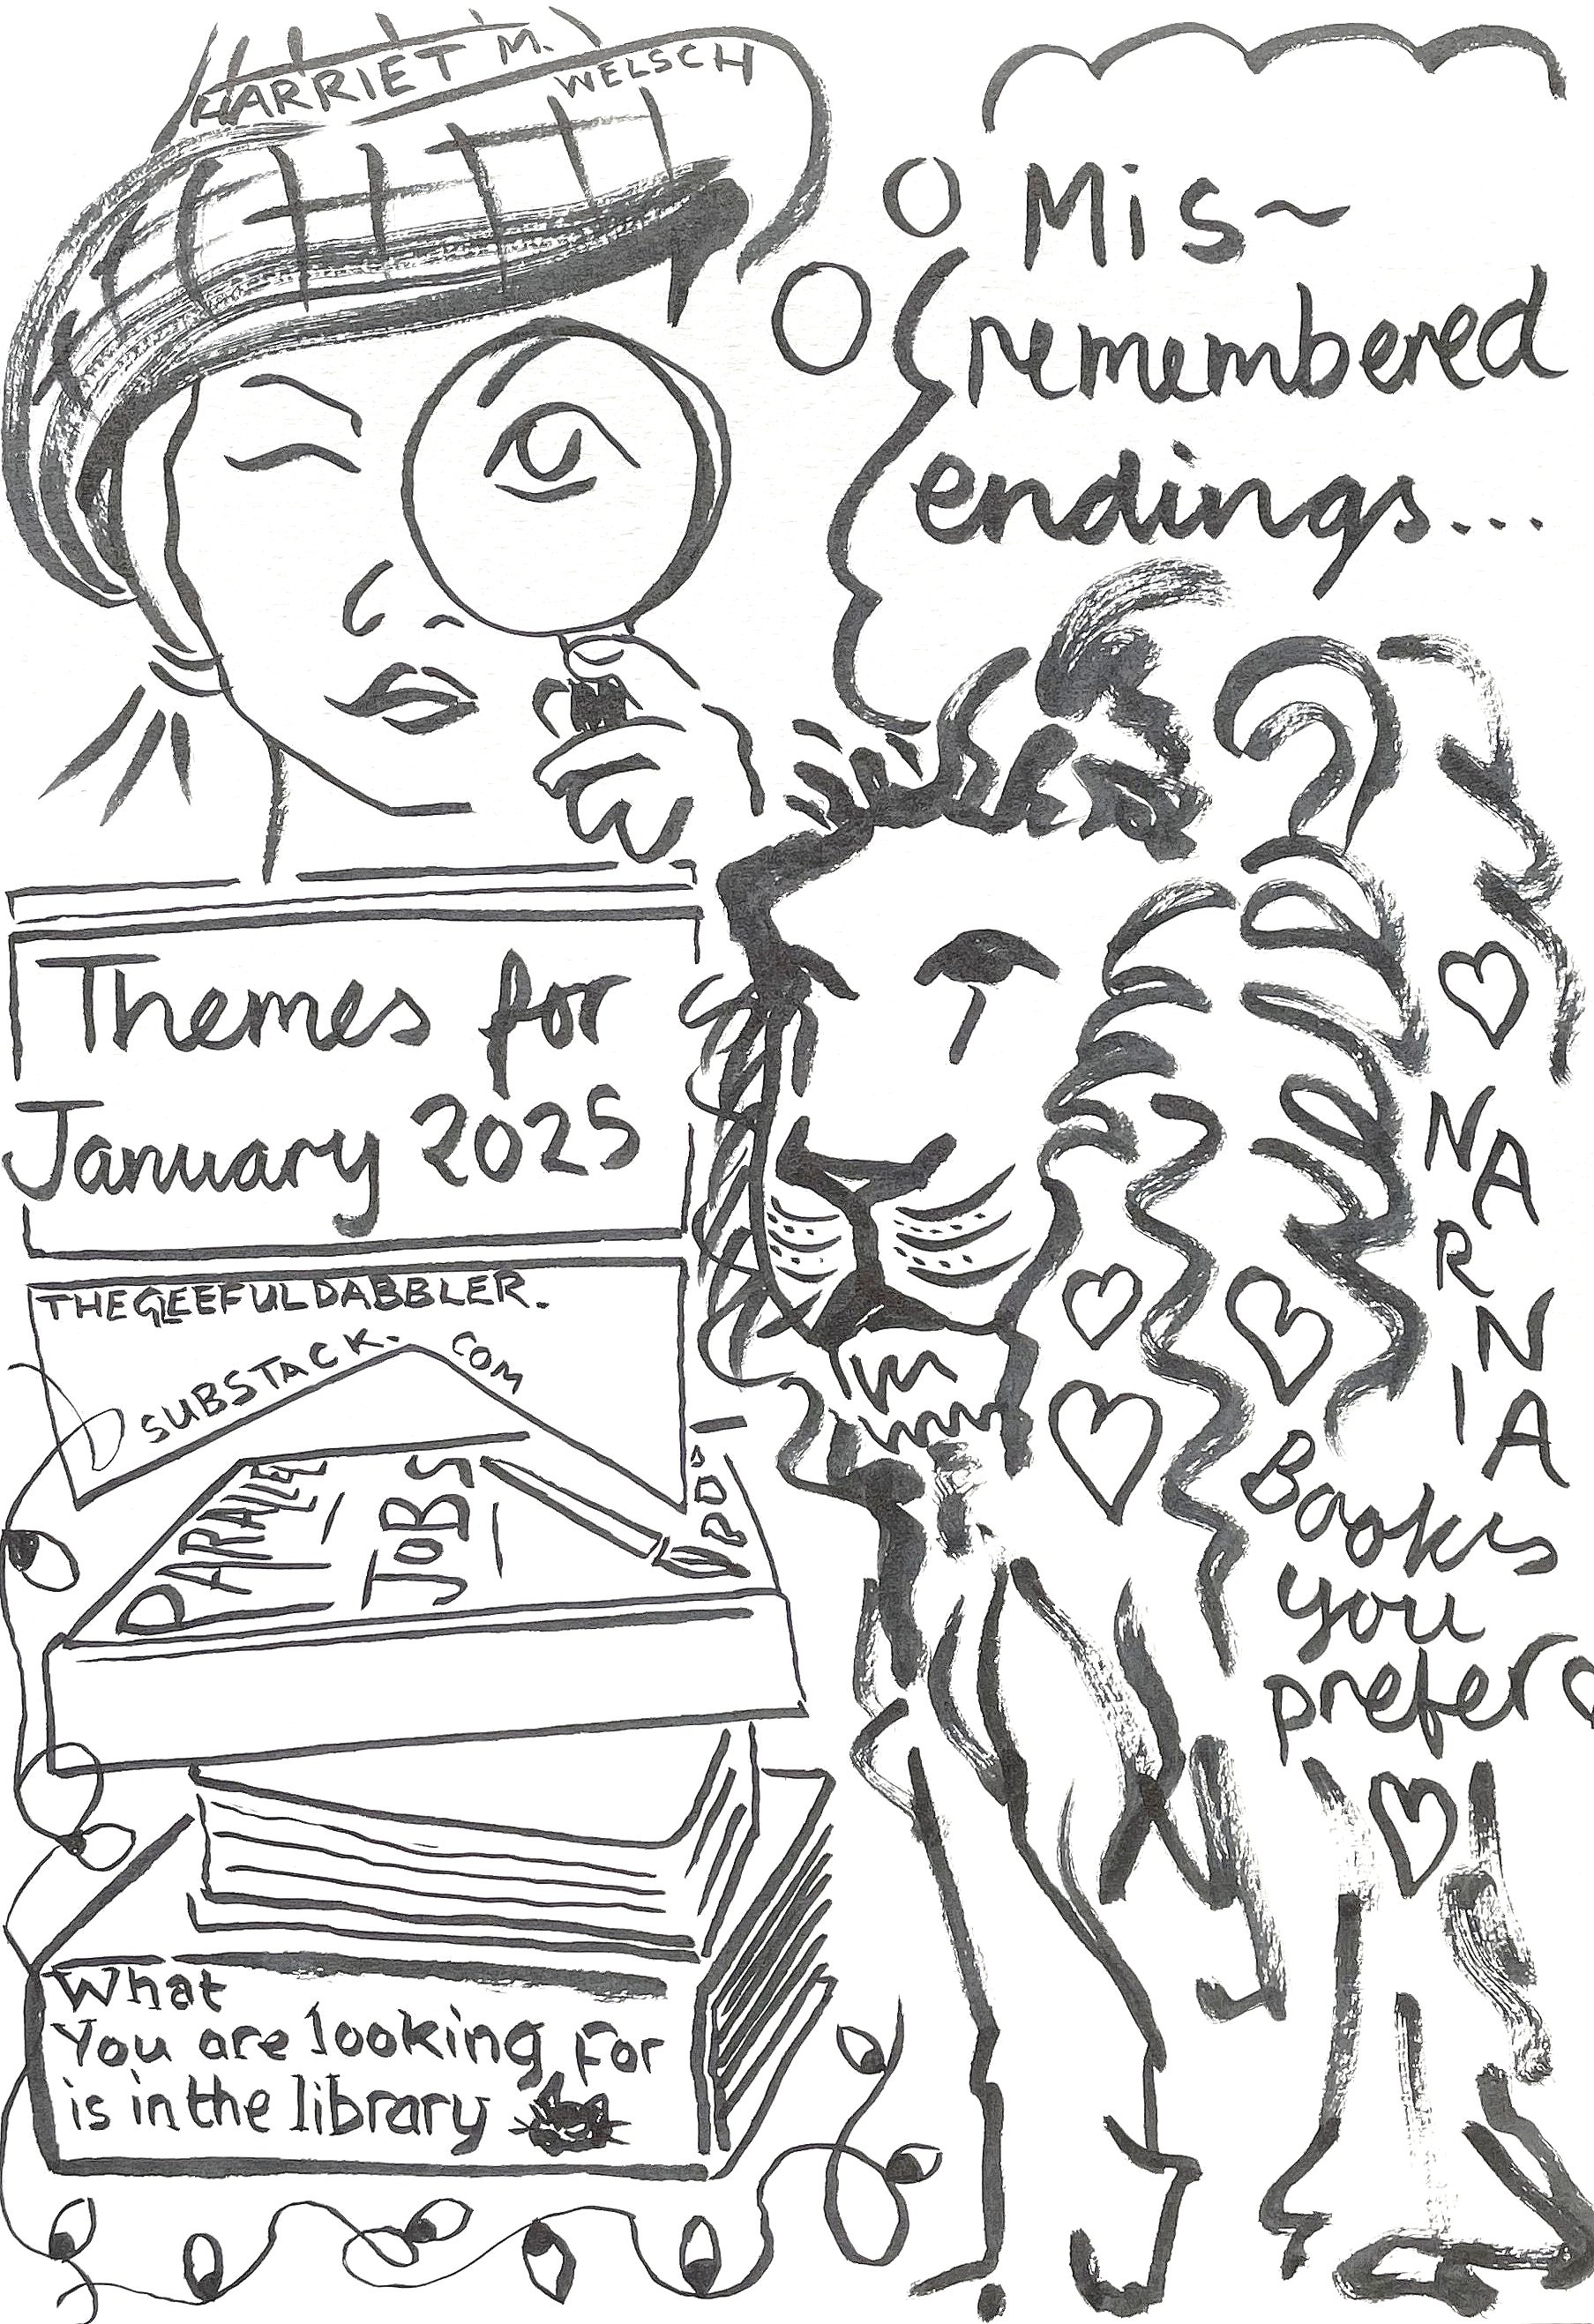 HARRIET M.
WELSCH
Mis~
remembered
endings...
Themes for
January 2025
THEGLEEFULDABBLER.
SUBSTACK. COM
PARALLEL
JOBS
NARNIA
Books
you
prefer
What
You are looking for
is in the library